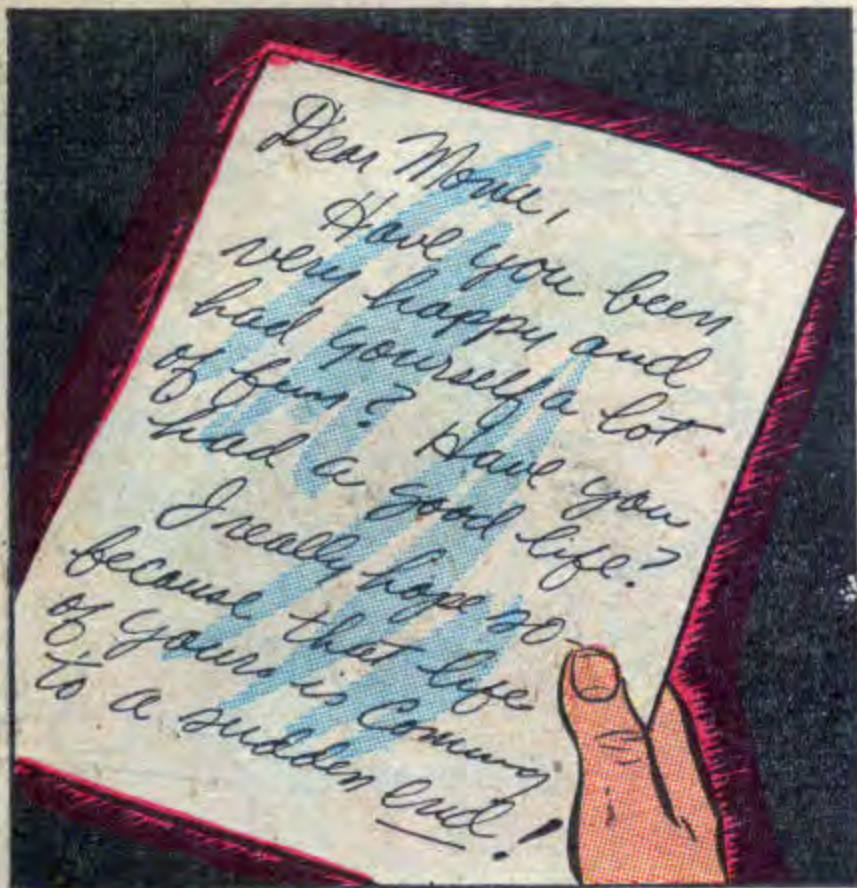 Dear Monu,
Have you been
very happy and
had yourself a lot
of fun? Have you
had a good life?
I really hope so—
because that life
of yours is coming
to a sudden end!